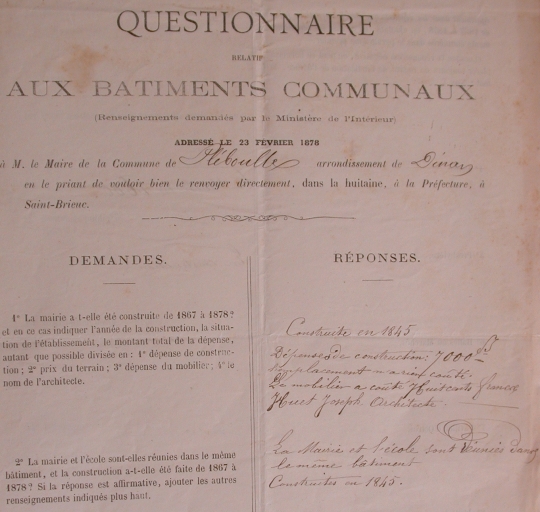 QUESTIONNAIRE
RELATIF
AUX BATIMENTS COMMUNAUX
(Renseignements demandés par le Ministère de l'Intérieur)
ADRESSÉ LE 23 FÉVRIER 1878
à M. le Maire de la Commune de Pléboulle arrondissement de Dinan
en le priant de vouloir bien le renvoyer directement, dans la huitaine, à la Préfecture, à
Saint-Brieuc.
DEMANDES.
1° La mairie a t-elle été construite de 1867 à 1878?
et en ce cas indiquer l'année de la construction, la situa-
tion de l'établissement, le montant total de la dépense,
autant que possible divisée en: 1° dépense de construc-
tion; 2° prix du terrain; 3° dépense du mobilier; 4° le
nom de l'architecte.
2° La mairie et l'école sont-elles réunies dans le même
bâtiment, et la construction a-t-elle été faite de 1867 à
1878? Si la réponse est affirmative, ajouter les autres
renseignements indiqués plus haut.
RÉPONSES.
Constructe en 1845
Dépenses de construction: 7000 f
L'emplacement n'a rien couté.
Le mobilier a coute Huit cents francs
Huet Joseph Architecte.
La Mairie et l'école sont Réunies dans
le meme bâtiment
Constructes en 1845.